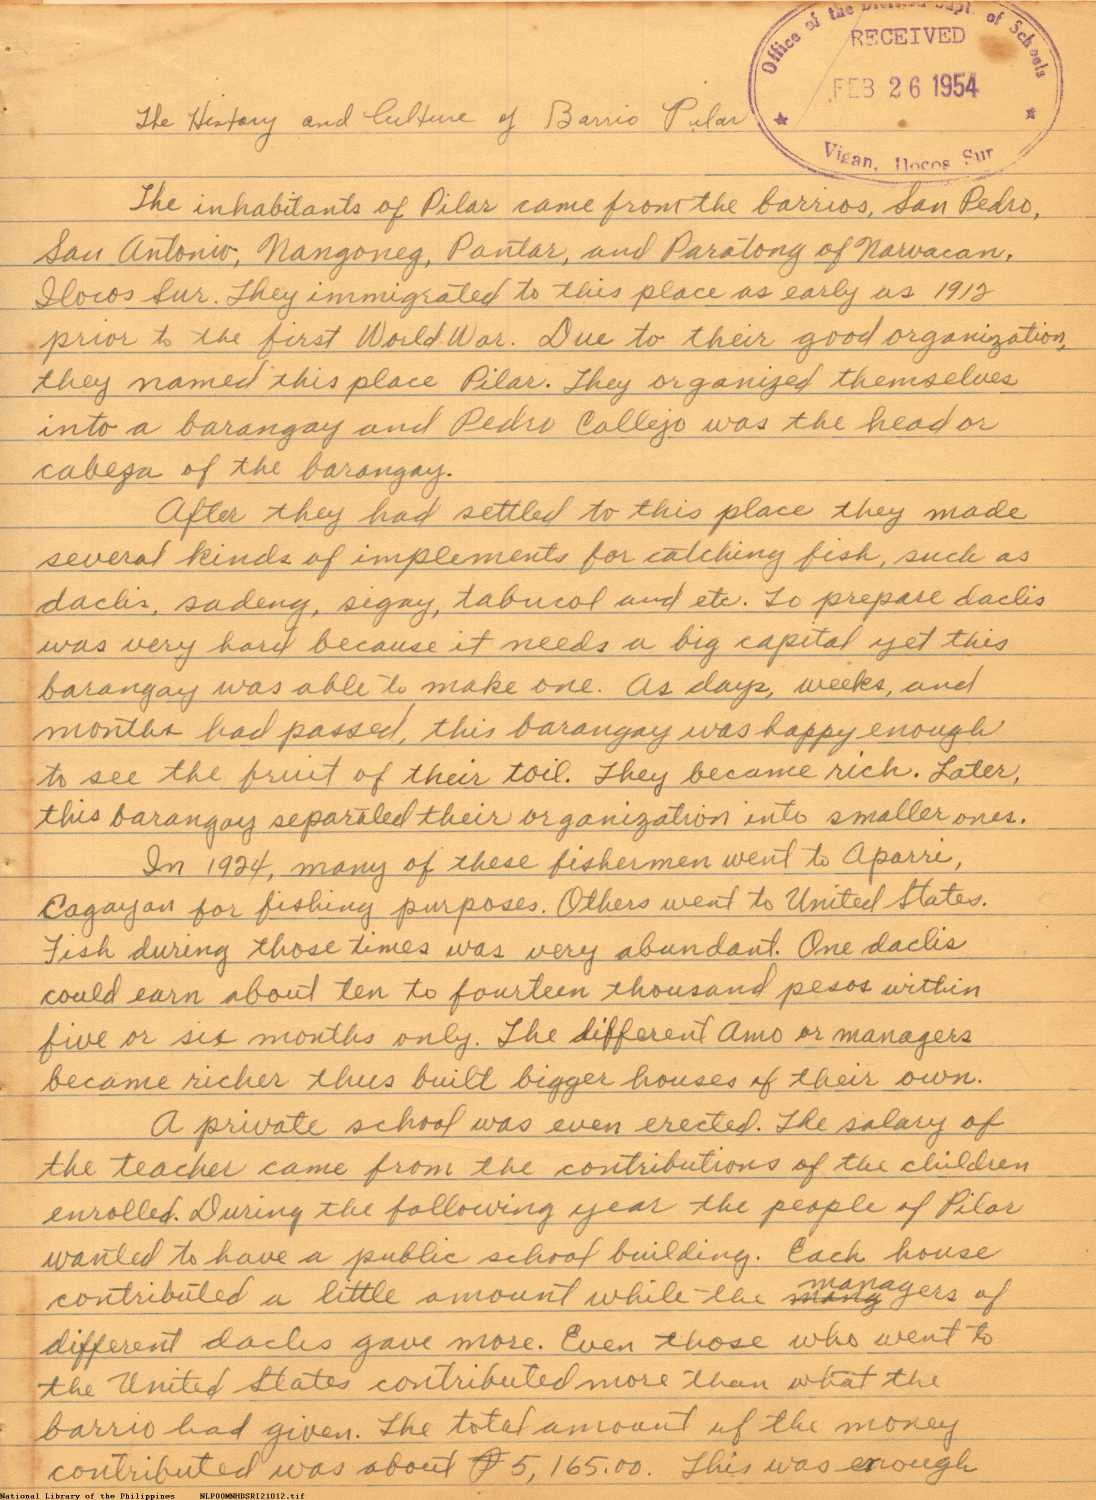 Office of the Division Supt. of Schools
RECEIVED
FEB 26 1954
Vigan, Ilocos Sur
The History and Culture of Barrio Pilar
The inhabitants of Pilar came from the barrios, San Pedro,
San Antonio, Nangoneg, Pantar, and Paratong of Narvacan,
Ilocos Sur. They immigrated to this place as early as 1912
prior to the first World War. Due to their good organization,
they named this place Pilar. They organized themselves
into a barangay and Pedro Callejo was the head or
cabeza of the barangay.
After they had settled to this place they made
several kinds of implements for catching fish, such as
daclis, sadeng, sigay, tabucol and etc. To prepare daclis
was very hard because it needs a big capital yet this
barangay was able to make one. As days, weeks, and
months had passed, this barangay was happy enough
to see the fruit of their toil. They became rich. Later,
this barangay separated their organization into smaller ones.
In 1924, many of these fishermen went to Aparri,
Cagayan for fishing purposes. Others went to United States.
Fish during those times was very abundant. One daclis
could earn about ten to fourteen thousand pesos within
five or six months only. The different Amo or managers
became richer thus built bigger houses of their own.
A private school was even erected. The salary of
the teacher came from the contributions of the children
enrolled. During the following year the people of Pilar
wanted to have a public school building. Each house
contributed a little amount while the managers of
different daclis gave more. Even those who went to
the United States contributed more than what the
barrio had given. The total amount of the money
contributed was about ₱5,165.00. This was enough
National Library of the Philippines NLP00MNHDSRI21012.tif